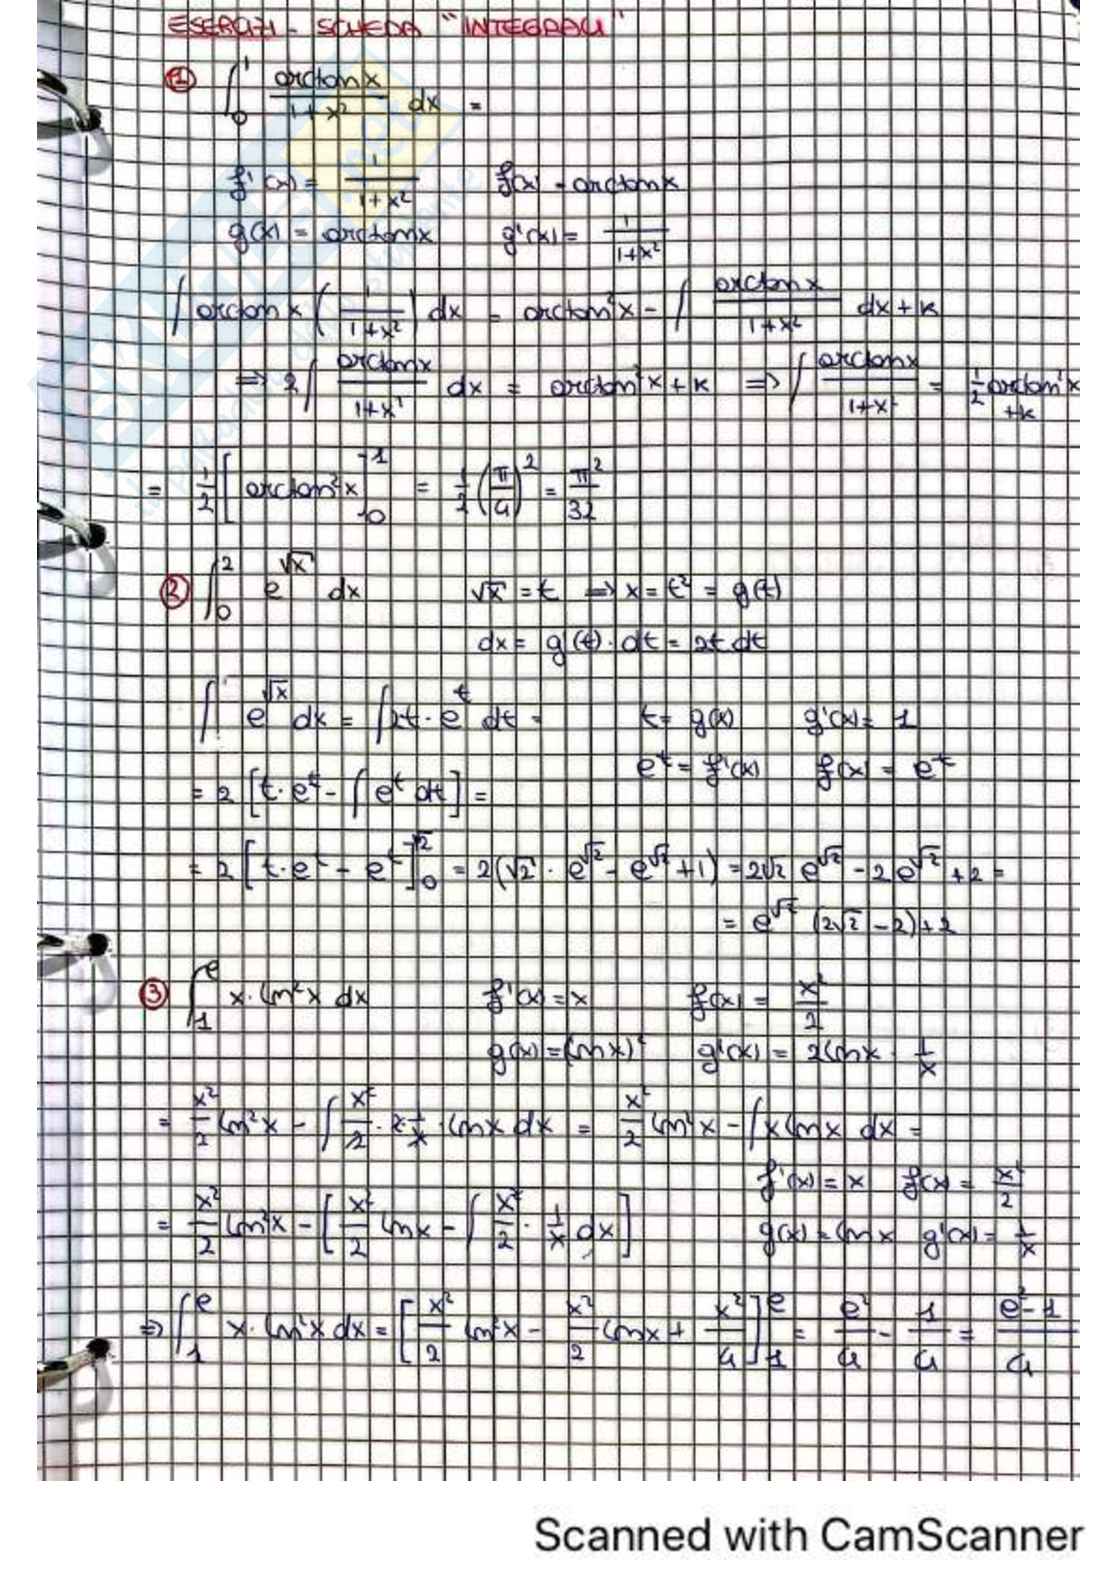 ESERCIZI - SCHEDA "INTEGRALI"
① ∫₀¹ arctan x / 1+x² dx =
f'(x) = 1/1+x² f(x) = arctan x
g(x) = arctan x g'(x) = 1/1+x²
∫ arctan x (1/1+x²) dx = arctan²x - ∫ arctan x / 1+x² dx + k
=> 2∫ arctan x / 1+x² dx = arctan²x + k => ∫ arctan x / 1+x² = 1/2 arctan²x + k
= 1/2 [arctan²x]₀¹ = 1/2 (π/4)² = π²/32
② ∫₀² e^√x dx √x = t => x = t² = g(t)
dx = g'(t) · dt = 2t dt
∫ e^√x dx = ∫ 2t · e^t dt = t = g(x) g'(x) = 1
e^t = f'(x) f(x) = e^t
= 2 [t · e^t - ∫ e^t dt] =
= 2 [t · e^t - e^t]₀^√2 = 2(√2 · e^√2 - e^√2 + 1) = 2√2 e^√2 - 2e^√2 + 2 =
= e^√2 (2√2 - 2) + 2
③ ∫₁^e x · ln²x dx f'(x) = x f(x) = x²/2
g(x) = (ln x)² g'(x) = 2 ln x · 1/x
= x²/2 ln²x - ∫ x²/2 · 2 1/x · ln x dx = x²/2 ln²x - ∫ x ln x dx =
f'(x) = x f(x) = x²/2
= x²/2 ln²x - [x²/2 ln x - ∫ x²/2 · 1/x dx] g(x) = ln x g'(x) = 1/x
=> ∫₁^e x · ln²x dx = [x²/2 ln²x - x²/2 ln x + x²/4]₁^e = e²/4 - 1/4 = e²-1/4
Scanned with CamScanner